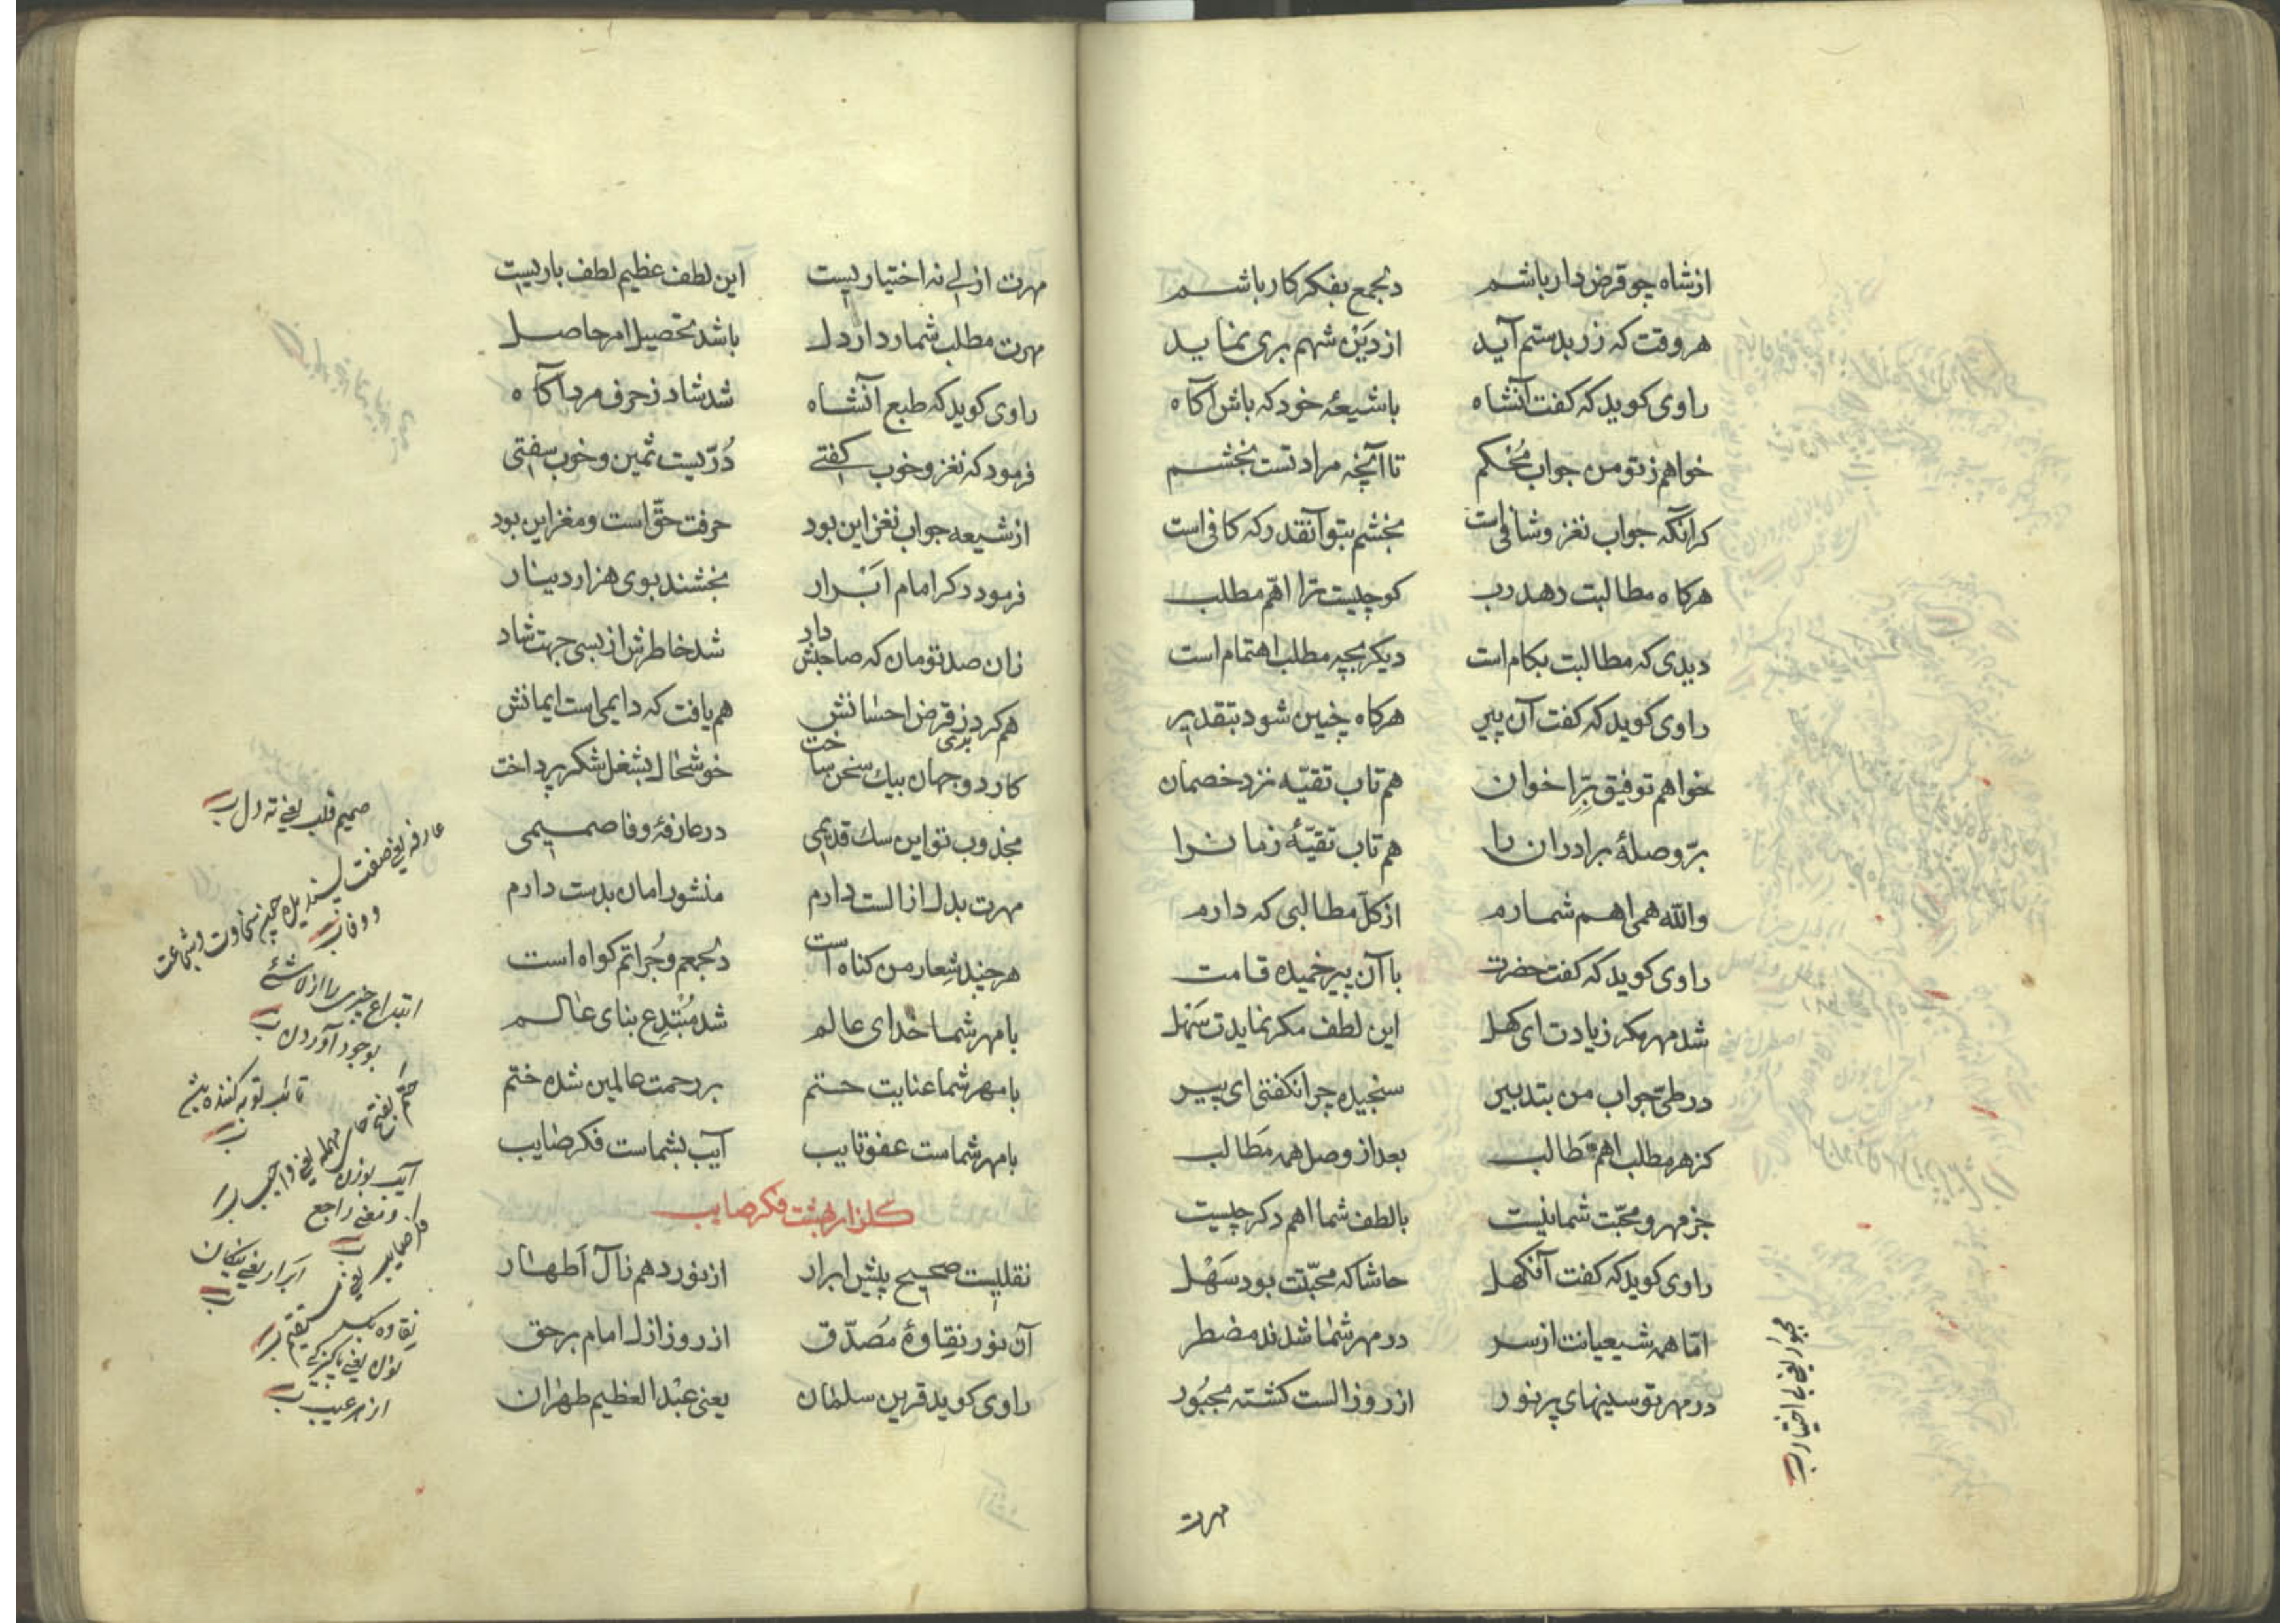 ازشاه چو قرض دار باشم دلجمع بفکر کار باشم
هر وقت که زر بدستم آید از دَیْن شهم بری نماید
راوی کوید که کفت آنشاه با شیعهٔ خود که باش آکاه
خواهم ز تو من جواب مُحکم تا آنچه مراد تست بخشم
کر آنکه جواب نغز و شافی است بخشم بتو آنقدر که کافی است
هرکاه مطالبت دهد رب کو چیست ترا اهّم مطلب
دیدی که مطالبت بکام است دیکر بچه مطلب اهتمام است
راوی کوید که کفت آن پیر هرکاه چنین شود بتقدیر
خواهم توفیق بِرّ اخوان هم تاب تقیّه نزد خصمان
برّ و صلهٔ برادران را هم تاب تقیّهٔ زمان را
والله همی اهم شمارم از کلّ مطالبی که دارم
راوی کوید که کفت حضرت با آن پیر خمیده قامت
شد مهر مکر زیادت ای کهل این لطف مکر نمایدت سَهْل
در طیّ جواب من بتدبیر سنجیده چرا نکفتی ای پیر
کز هر مطلب اهم مَطالب بعد از وصل همه مَطالب
جز مهر و محبّت شما نیست با لطف شما اهم دکر چیست
راوی کوید که کفت آنکهل حاشا که محبّتت بود سَهْل
امّا همه شیعیانت از سر در مهر شما شدند مضطر
در مهر تو سینهای پرنور از روز الست کشته مجبُور
مجبور یعنی بی اختیار
مهرت
مهرت ازلی نه اختیاریست این لطف عظیم لطف باریست
مهرت مطلب شمارد ار دل باشد تحصیل امر حاصل
راوی کوید که طبع آنشاه شد شاد ز حرف مرد آکاه
فرمود که نغز و خوب کفتی دُرّیست ثمین و خوب سفتی
از شیعه جواب نغز این بود حرفت حقّ است و مغز این بود
فرمود دکر امام اَبْرار بخشند بوی هزار دینار
زان صد تومان که صاحبش داد شد خاطرش از بسی جهت شاد
هم کرد ز قرض بری احسانش هم یافت که دایمی است ایمانش
کار دو جهان بیك سخن ساخت خوشحال بشغل شکر پرداخت
مجذوب تو این سك قدیمی در عارفهٔ وفا صمیمی
مهرت بدل از الست دارم منشور امان بدست دارم
هر چند شعار من کناه است دلجمعم و جُراتم کواه است
با مهر شما خدای عالم شد مُبْتدِع بنای عالم
با مهر شما عنایت حتم بر رحمت عالمین شده ختم
با مهر شماست عفو تایب آیب بشماست فکر صایب
کلزار بهشت فکر صایب
نقلیست صحیح پیش ابرار از نور دهم ز آل اَطهار
آن نور نِقاوهٔ مُصدّق از روز ازل امام بر حق
راوی کوید قرین سلمان یعنی عبْد العظیم طهران
صمیم قلب یعنی ته دل
عارفه یعنی صفت پسندیده چون سخاوت و شجاعت
و وفا
ابتداع چیزی را از لاشئ
بوجود آوردن
تائب توبه کننده
حتم بفتح حای مهمله یعنی واجب
آیب بوزن و معنی راجع
فکر صایب یعنی مستقیم
ابرار یعنی نیکان
نقاوه
یعنی پاکیزکی
از هر عیب